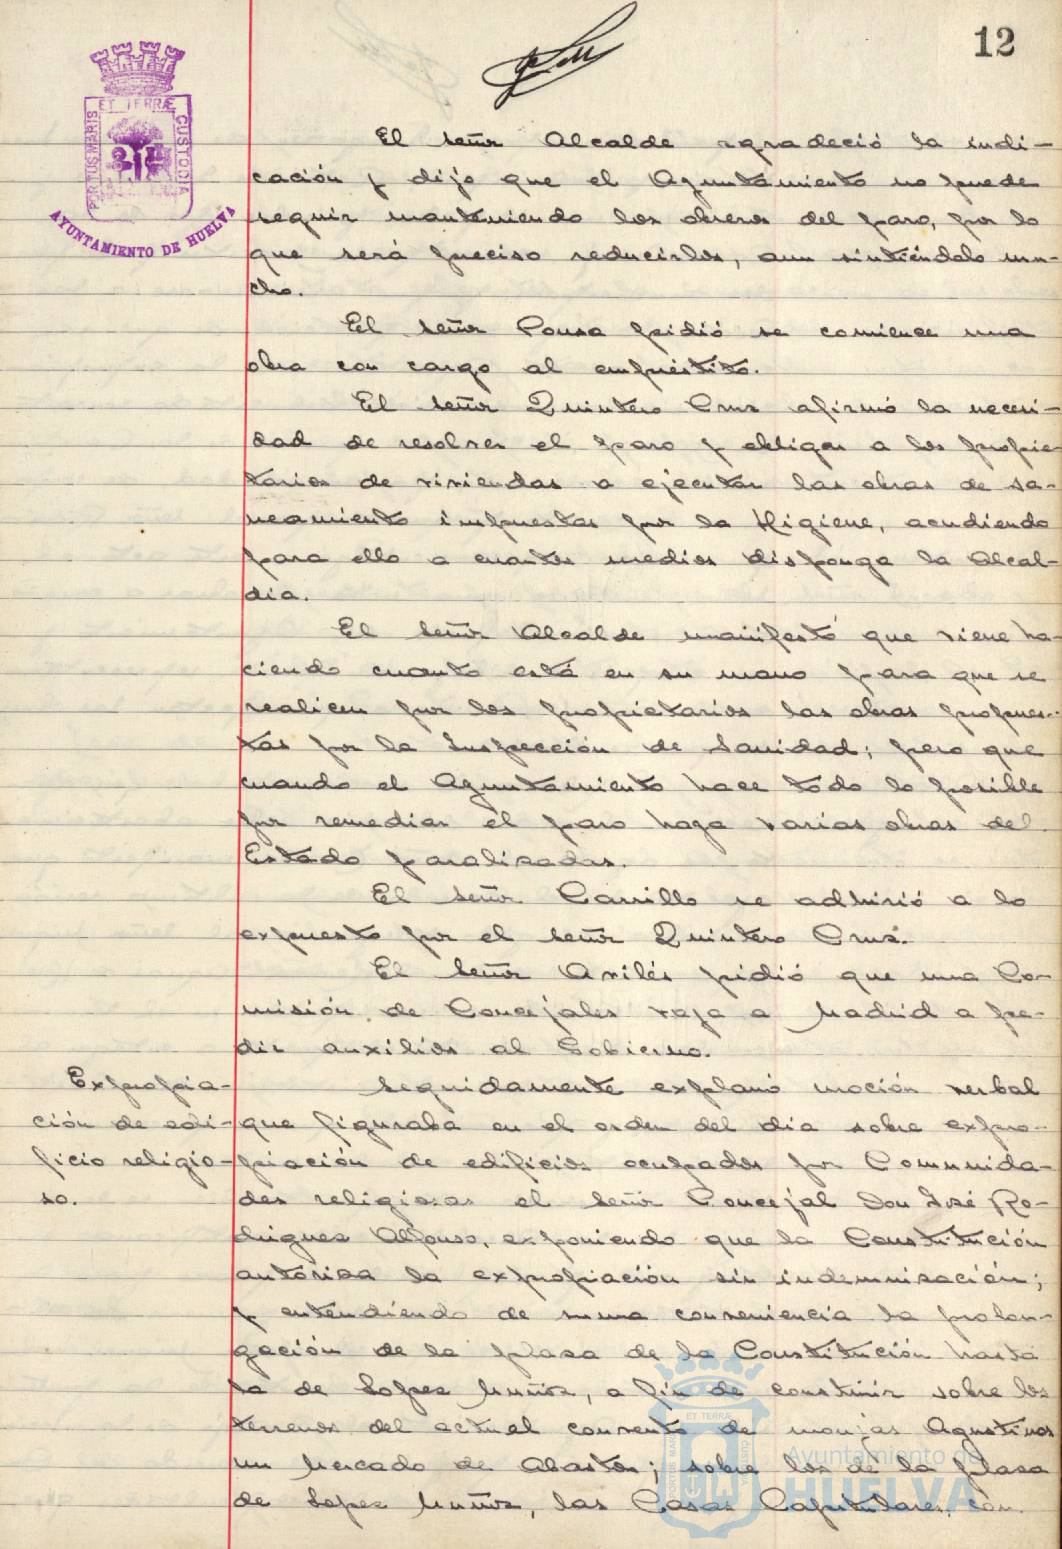 12
PORTUS MARIS ET TERRÆ CUSTODIA
AYUNTAMIENTO DE HUELVA
El señor Alcalde agradeció la indi-
cación y dijo que el Ayuntamiento no puede
seguir manteniendo los obreros del paro, por lo
que será preciso reducirlos, aun sintiéndolo mu-
cho.
El señor Ponsa pidió se comience una
obra con cargo al empréstito.
El señor Quintero Cruz afirmó la necesi-
dad de resolver el paro y obligar a los propie
tarios de viviendas a ejecutar las obras de sa-
neamiento impuestas por la Higiene, acudiendo
para ello a cuantos medios disponga la Alcal-
día.
El señor Alcalde manifestó que viene ha-
ciendo cuanto está en su mano para que se
realicen por los propietarios las obras propues-
tas por la Inspección de Sanidad; pero que
cuando el Ayuntamiento hace todo lo posible
por remediar el paro haya varias obras del
Estado paralizadas.
El señor Carrillo se adhirió a lo
expuesto por el señor Quintero Cruz.
El señor Avilés pidió que una Co-
misión de Concejales vaya a Madrid a pe-
dir auxilios al Gobierno.
Expropia-
ción de edi-
ficio religio-
so.
Seguidamente explanó moción verbal
que figuraba en el orden del día sobre expro-
piación de edificios ocupados por Comunida-
des religiosas el señor Concejal Don José Ro-
driguez Alfonso, exponiendo que la Constitución
autoriza la expropiación sin indemnización;
y entendiendo de suma conveniencia la prolon-
gación de la plaza de la Constitución hasta
la de Lopez Muñoz, a fin de construir sobre los
terrenos del actual convento de monjas Agustinas
un Mercado de Abastos; sobre los de la plaza
de Lopez Muñoz, las Casas Capitulares, con
Ayuntamiento de
HUELVA